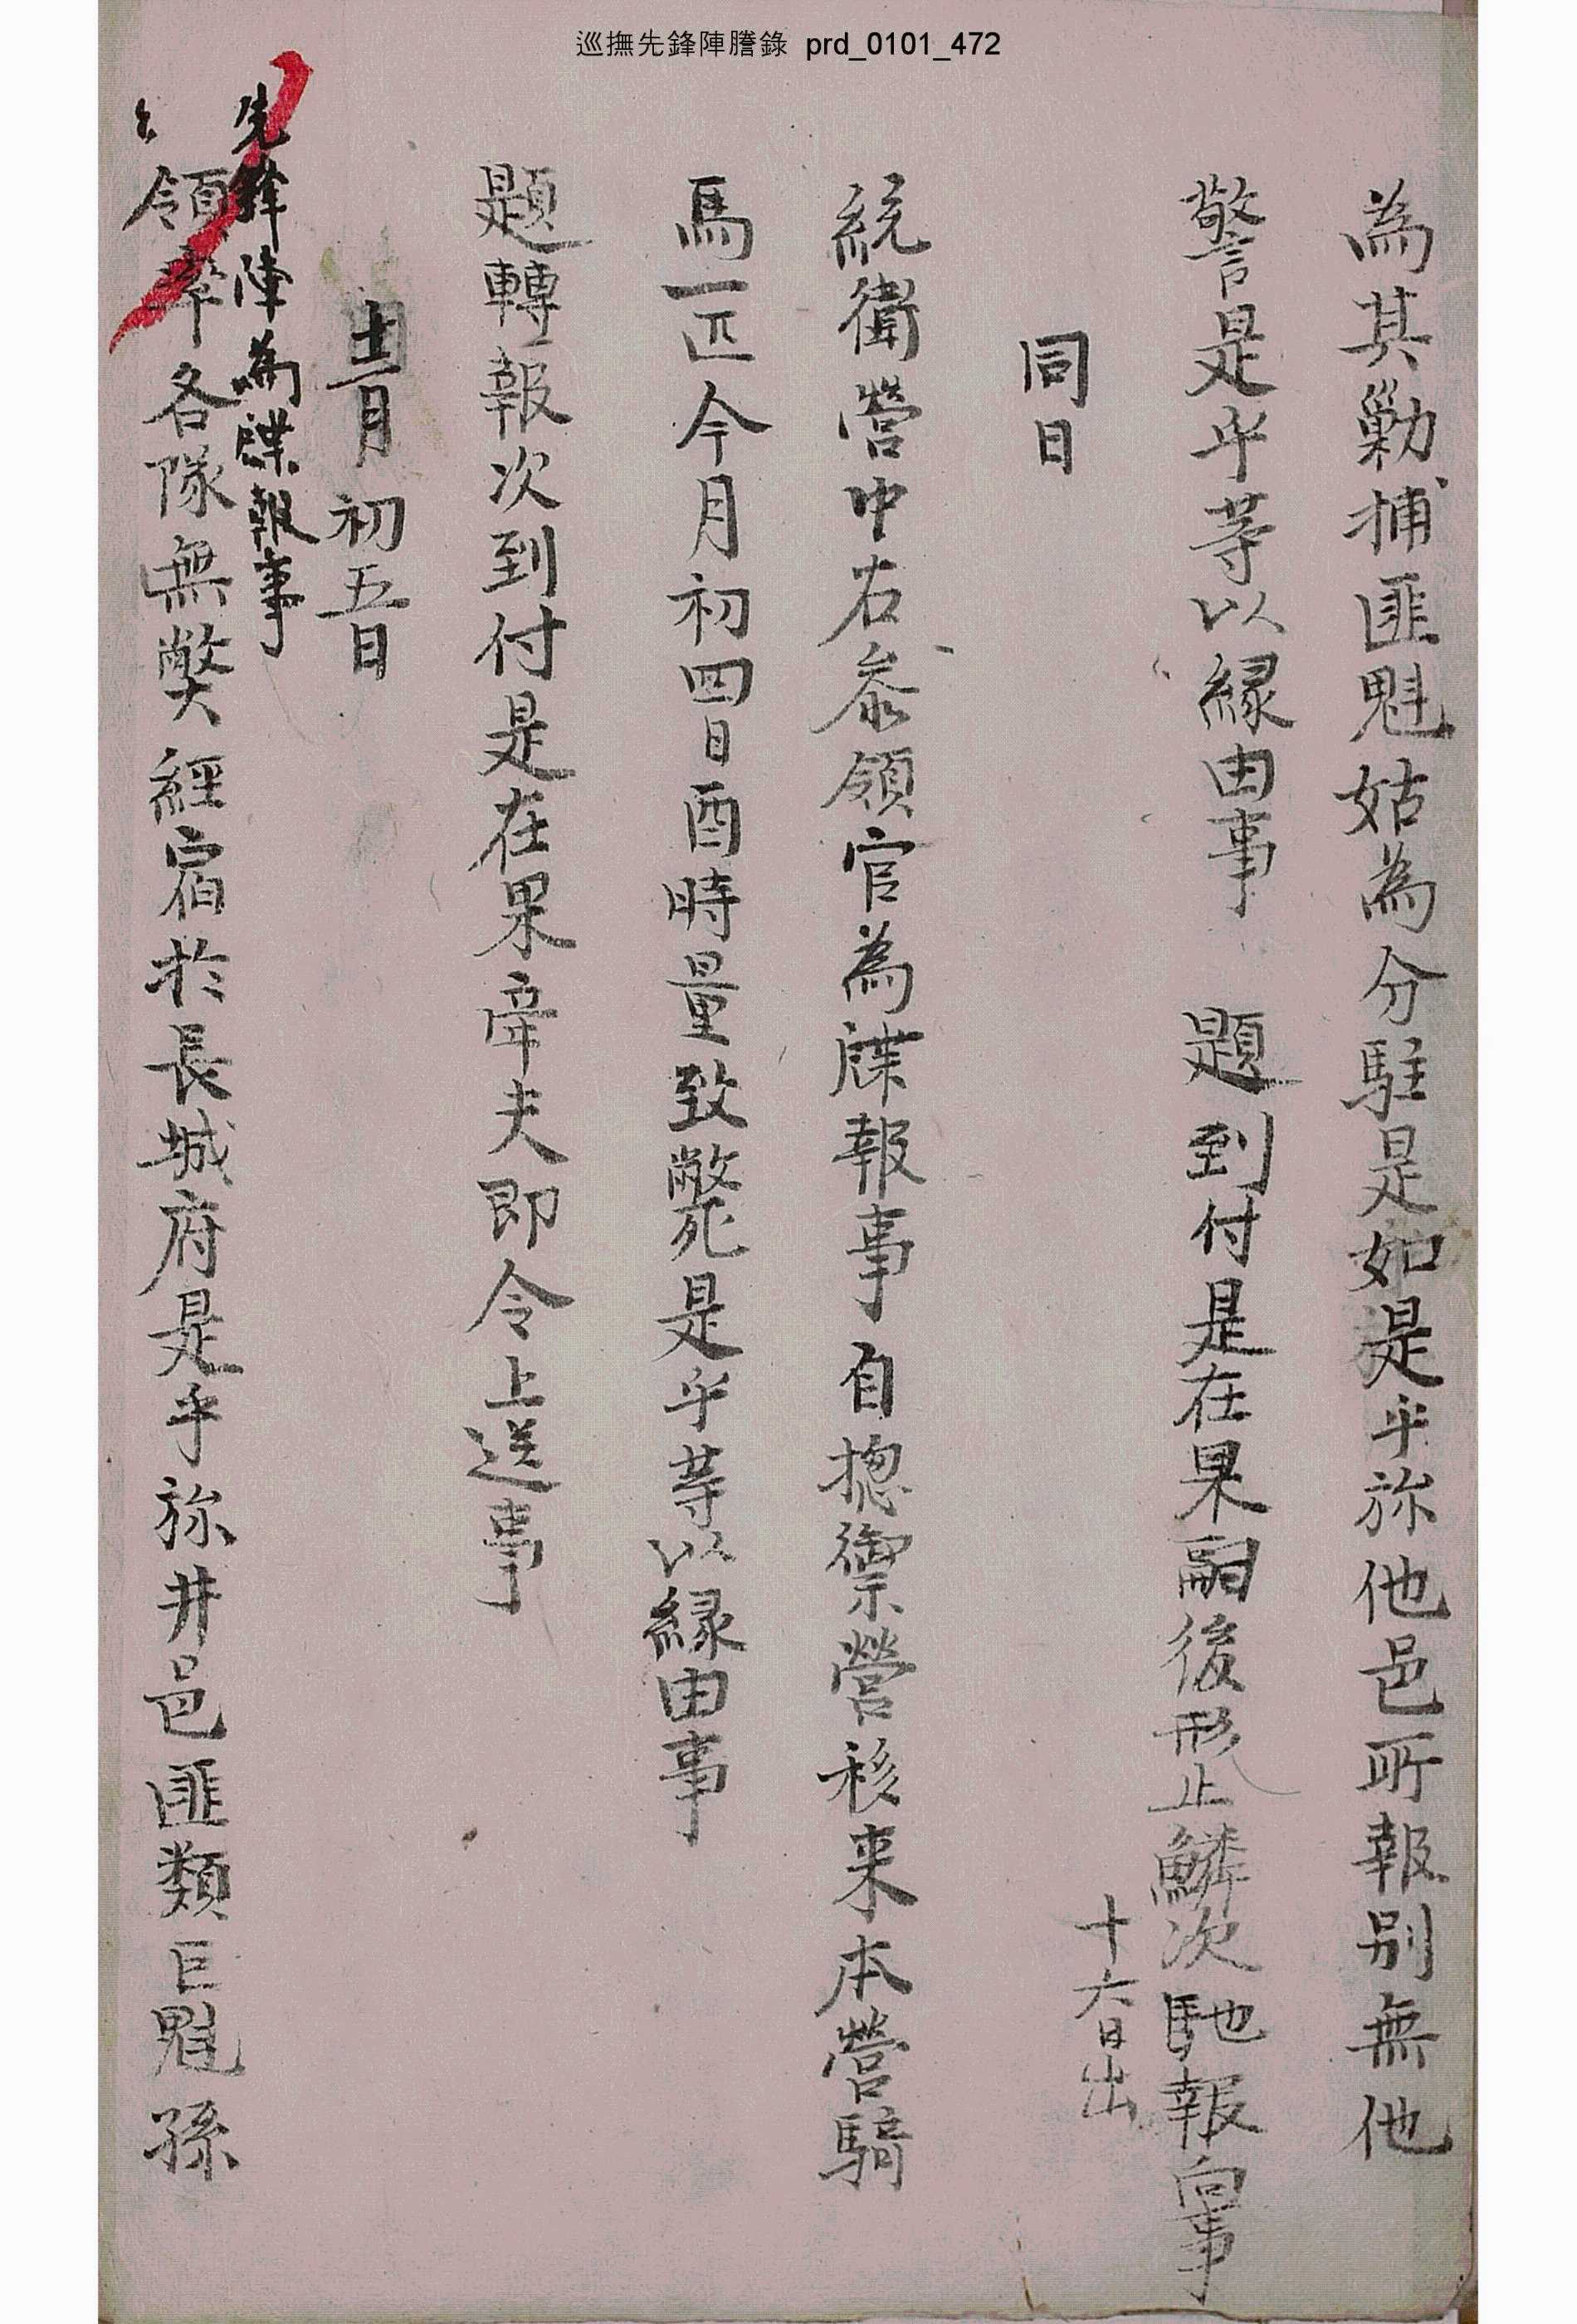 巡撫先鋒陣謄錄 prd_0101_472
為其勦捕匪魁姑為分駐是如是乎旀他邑所報別無他
警是乎等以緣由事 題到付是在果嗣後形止鱗次馳報向事
十六日出
同日
統衛營中右叅領官為牒報事自摠禦營移来本營騎
馬一匹今月初四日酉時量致斃是乎等以緣由事
題轉報次到付是在果牽夫即令上送事
十二月初五日
先鋒陣為牒報事
領率各隊無弊經宿於長城府是乎旀井邑匪類巨魁孫